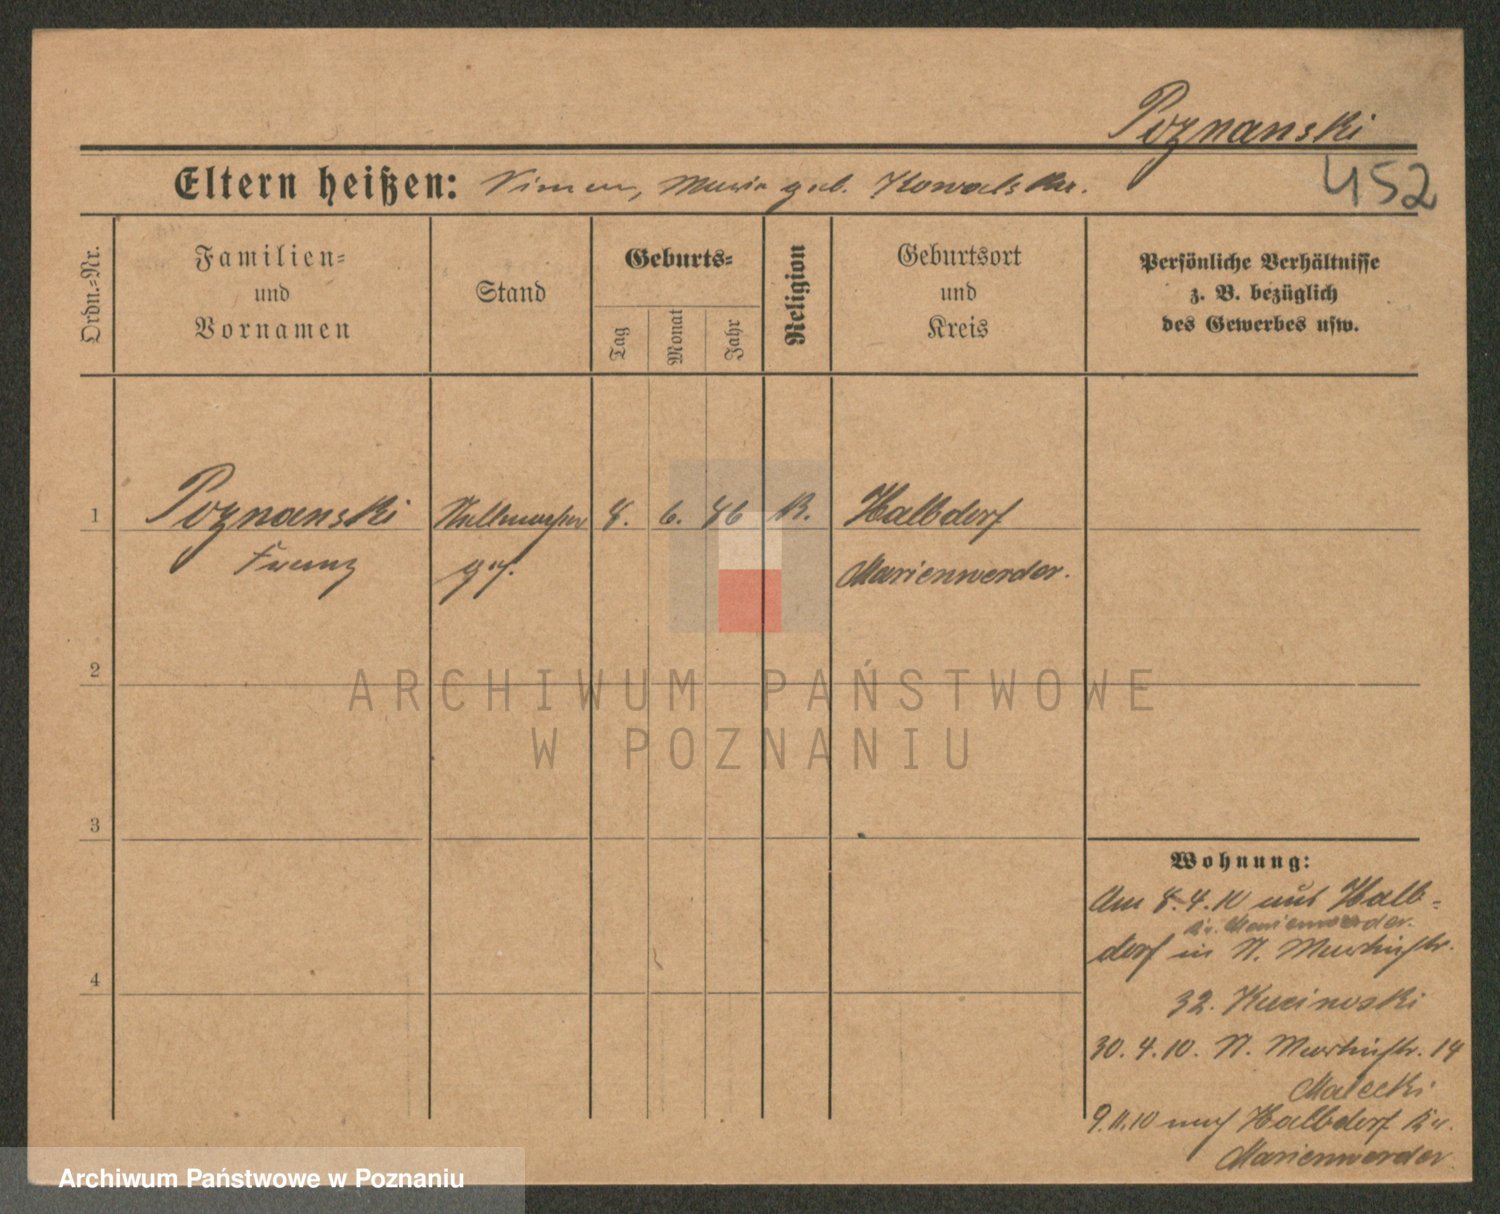 Poznanski
452
Eltern heißen: Simon, Marie geb. Kowalska.
Ordn.-Nr.
Familien-
und
Vornamen
Stand
Geburts-
Tag
Monat
Jahr
Religion
Geburtsort
und
Kreis
Persönliche Verhältnisse
z. B. bezüglich
des Gewerbes usw.
1
Poznanski
Franz
Stellmacher
8. 6. 86 K.
Halbdorf
Marienwerder.
2
ARCHIWUM PAŃSTWOWE
W POZNANIU
3
4
Wohnung:
Am 8.4.10 aus Halb-
Kr. Marienwerder.
dorf in St. Martinstr.
32.
30.4.10. St. Martinstr. 14
Malecki
9.11.10 nach Halbdorf Kr.
Marienwerder
Archiwum Państwowe w Poznaniu